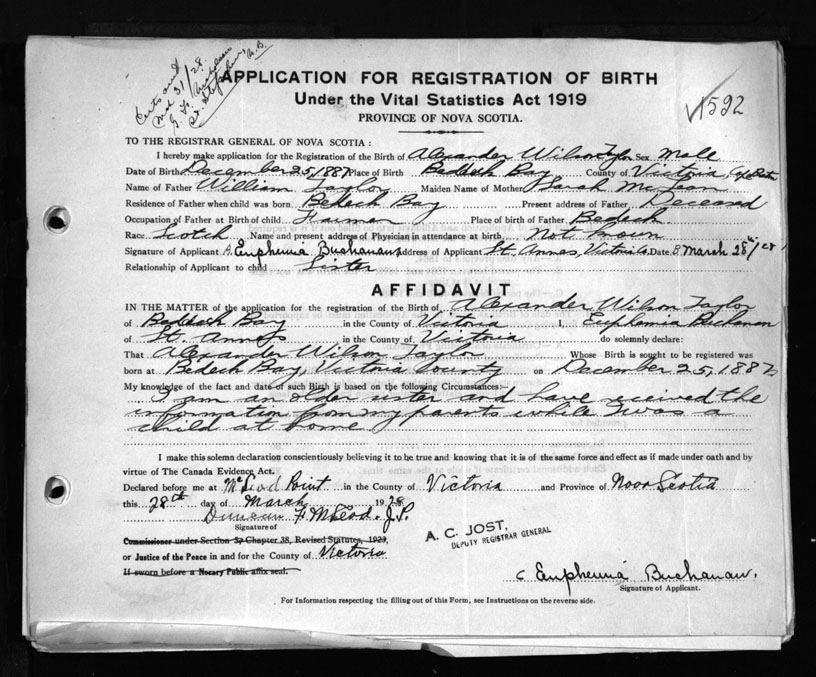 Certs and
Mch 31/28
St. Stephen, N.B.
APPLICATION FOR REGISTRATION OF BIRTH
Under the Vital Statistics Act 1919
PROVINCE OF NOVA SCOTIA.
1592
TO THE REGISTRAR GENERAL OF NOVA SCOTIA :
I hereby make application for the Registration of the Birth of Alexander Wilson Taylor Sex Male
Date of Birth December 25, 1887 Place of Birth Bedeck Bay County of Victoria,
Name of Father William Taylor Maiden Name of Mother Sarah McLean
Residence of Father when child was born Bedeck Bay Present address of Father Deceased
Occupation of Father at Birth of child Farmer Place of birth of Father Bedeck
Race Scotch Name and present address of Physician in attendance at birth Not known
Signature of Applicant Euphemia Buchanan Address of Applicant St. Annas, Victoria Date March 28th/28
Relationship of Applicant to child Sister
AFFIDAVIT
IN THE MATTER of the application for the registration of the Birth of Alexander Wilson Taylor
of Beddeck Bay in the County of Victoria I, Euphemia Buchanan
of St. Anns in the County of Victoria do solemnly declare:
That Alexander Wilson Taylor Whose Birth is sought to be registered was
born at Bedeck Bay, Victoria County on December 25, 1887
My knowledge of the fact and date of such Birth is based on the following Circumstances:
I am an older sister and have received the
information from my parents while I was a
child at home
I make this solemn declaration conscientiously believing it to be true and knowing that it is of the same force and effect as if made under oath and by
virtue of The Canada Evidence Act.
Declared before me at McLeod Point in the County of Victoria and Province of Nova Scotia
this 28th day of March 1928
Duncan F McLeod. J.P.
Signature of
Commissioner under Section 37 Chapter 38, Revised Statutes, 1923,
or Justice of the Peace in and for the County of Victoria
If sworn before a Notary Public affix seal.
A. C. JOST,
DEPUTY REGISTRAR GENERAL
Euphemia Buchanan.
Signature of Applicant.
For Information respecting the filling out of this Form, see Instructions on the reverse side.